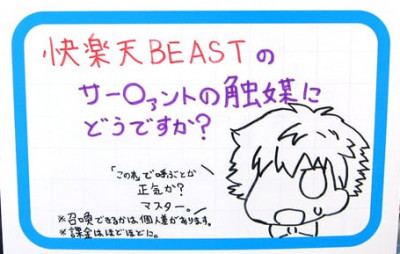 快楽天BEASTの
サー〇ァントの触媒に
どうですか?
「この札で呼ぶとか
正気か?
マスター。」
※召喚できるかは個人差があります。
※課金はほどほどに。